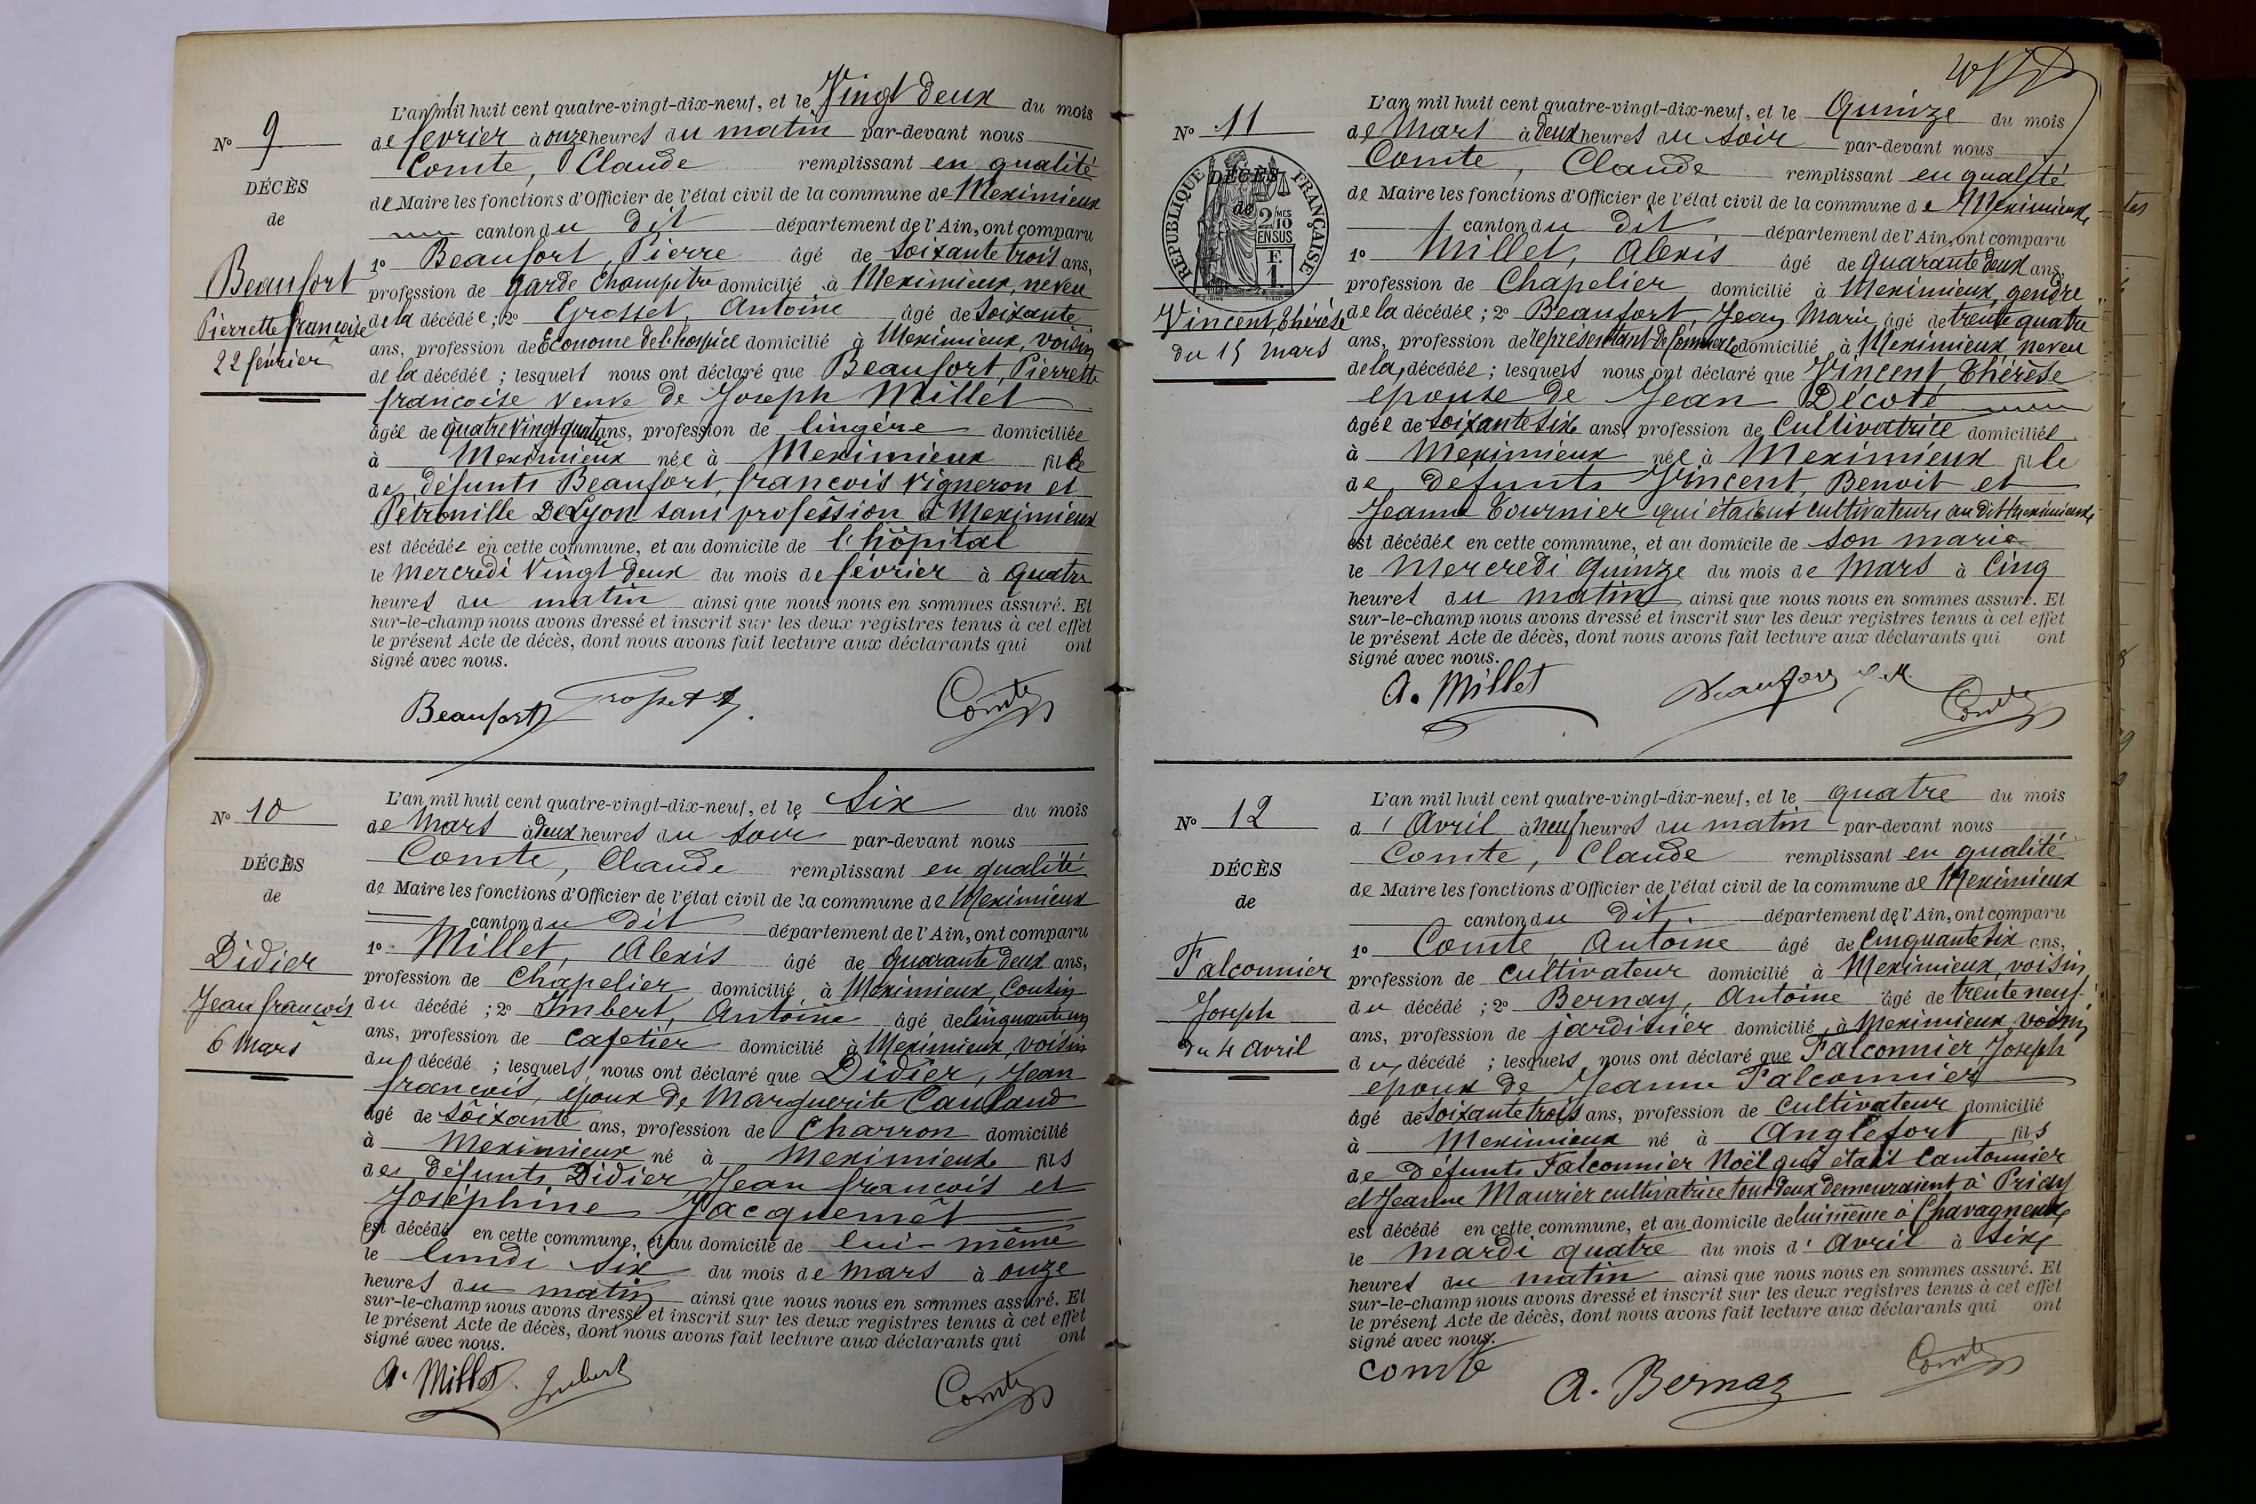 Nº 9
DÉCÈS
de
Beaufort
Pierrette françoise
22 février
L'an mil huit cent quatre-vingt-dix-neuf, et le Vingt deux du mois
de février à onze heures du matin par-devant nous
Comte, Claude remplissant en qualité
de Maire les fonctions d'Officier de l'état civil de la commune de Meximieux
canton du dit département de l'Ain, ont comparu
1º Beaufort, Pierre âgé de soixante trois ans,
profession de garde Champêtre domicilié à Meximieux, neveu
de la décédée ; 2º Grosset, Antoine âgé de soixante
ans, profession de Econome de l'hospice domicilié à Meximieux, voisin
de la décédée ; lesquels nous ont déclaré que Beaufort, Pierrette
françoise veuve de Joseph Millet
âgée de quatre vingt quatre ans, profession de lingère domiciliée
à Meximieux née à Meximieux fille
de défunts Beaufort, françois vigneron et
Pétronille Delyon sans profession à Meximieux
est décédée en cette commune, et au domicile de l'hôpital
le Mercredi Vingt deux du mois de février à quatre
heures du matin ainsi que nous nous en sommes assuré. Et
sur-le-champ nous avons dressé et inscrit sur les deux registres tenus à cet effet
le présent Acte de décès, dont nous avons fait lecture aux déclarants qui ont
signé avec nous.
Beaufort Grosset A. Comte
Nº 10
DÉCÈS
de
Didier
Jean françois
6 Mars
L'an mil huit cent quatre-vingt-dix-neuf, et le Six du mois
de Mars à deux heures du soir par-devant nous
Comte, Claude remplissant en qualité
de Maire les fonctions d'Officier de l'état civil de la commune de Meximieux
canton du dit département de l'Ain, ont comparu
1º Millet, Alexis âgé de quarante deux ans,
profession de Chapelier domicilié à Meximieux, Cousin
du décédé ; 2º Imbert, Antoine âgé de cinquante un
ans, profession de cafetier domicilié à Meximieux, voisin
du décédé ; lesquels nous ont déclaré que Didier, Jean
françois, époux de Marguerite
âgé de soixante ans, profession de Charron domicilié
à Meximieux né à Meximieux fils
de défunts Didier Jean françois et
Joséphine Jacquemet
est décédé en cette commune, et au domicile de lui-même
le lundi six du mois de mars à onze
heures du matin ainsi que nous nous en sommes assuré. Et
sur-le-champ nous avons dressé et inscrit sur les deux registres tenus à cet effet
le présent Acte de décès, dont nous avons fait lecture aux déclarants qui ont
signé avec nous.
A. Millet Imbert Comte
Nº 11
RÉPUBLIQUE FRANÇAISE
DÉCÈS
de
2/10 MES
EN SUS
F.
1.
Vincent, Thérèse
du 15 mars
L'an mil huit cent quatre-vingt-dix-neuf, et le Quinze du mois
de Mars à deux heures du soir par-devant nous
Comte, Claude remplissant en qualité
de Maire les fonctions d'Officier de l'état civil de la commune de Meximieux
canton du dit département de l'Ain, ont comparu
1º Millet, Alexis âgé de quarante deux ans,
profession de Chapelier domicilié à Meximieux, gendre
de la décédée ; 2º Beaufort, Jean Marie âgé de trente quatre
ans, profession de représentant de commerce domicilié à Meximieux neveu
de la décédée ; lesquels nous ont déclaré que Vincent, Thérèse
épouse de Jean Décoté
âgée de soixante six ans, profession de Cultivatrice domiciliée
à Meximieux née à Meximieux fille
de défunts Vincent, Benoit et
Jeanne Tournier qui étaient cultivateurs au dit Meximieux
est décédée en cette commune, et au domicile de son marie
le Mercredi quinze du mois de Mars à Cinq
heures du matin ainsi que nous nous en sommes assuré. Et
sur-le-champ nous avons dressé et inscrit sur les deux registres tenus à cet effet
le présent Acte de décès, dont nous avons fait lecture aux déclarants qui ont
signé avec nous.
A. Millet Beaufort J. M. Comte
Nº 12
DÉCÈS
de
Falconnier
Joseph
du 4 avril
L'an mil huit cent quatre-vingt-dix-neuf, et le quatre du mois
d'Avril à neuf heures du matin par-devant nous
Comte, Claude remplissant en qualité
de Maire les fonctions d'Officier de l'état civil de la commune de Meximieux
canton du dit. département de l'Ain, ont comparu
1º Comte, Antoine âgé de Cinquante six ans,
profession de cultivateur domicilié à Meximieux, voisin
du décédé ; 2º Bernay, Antoine âgé de trente neuf
ans, profession de jardinier domicilié à Meximieux, voisin
du décédé ; lesquels nous ont déclaré que Falconnier, Joseph
époux de Jeanne Falconnier
âgé de soixante trois ans, profession de cultivateur domicilié
à Meximieux né à Anglefort fils
de défunts Falconnier Noël qui était Cantonnier
et Jeanne Maurier cultivatrice tout deux demeuraient à Priay
est décédé en cette commune, et au domicile de lui même à Chavagneux
le mardi quatre du mois d'Avril à six
heures du matin ainsi que nous nous en sommes assuré. Et
sur-le-champ nous avons dressé et inscrit sur les deux registres tenus à cet effet
le présent Acte de décès, dont nous avons fait lecture aux déclarants qui ont
signé avec nous.
comte A. Bernaz Comte